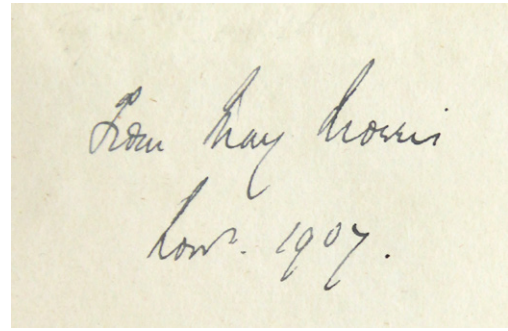 From May Morris
Novr. 1907.